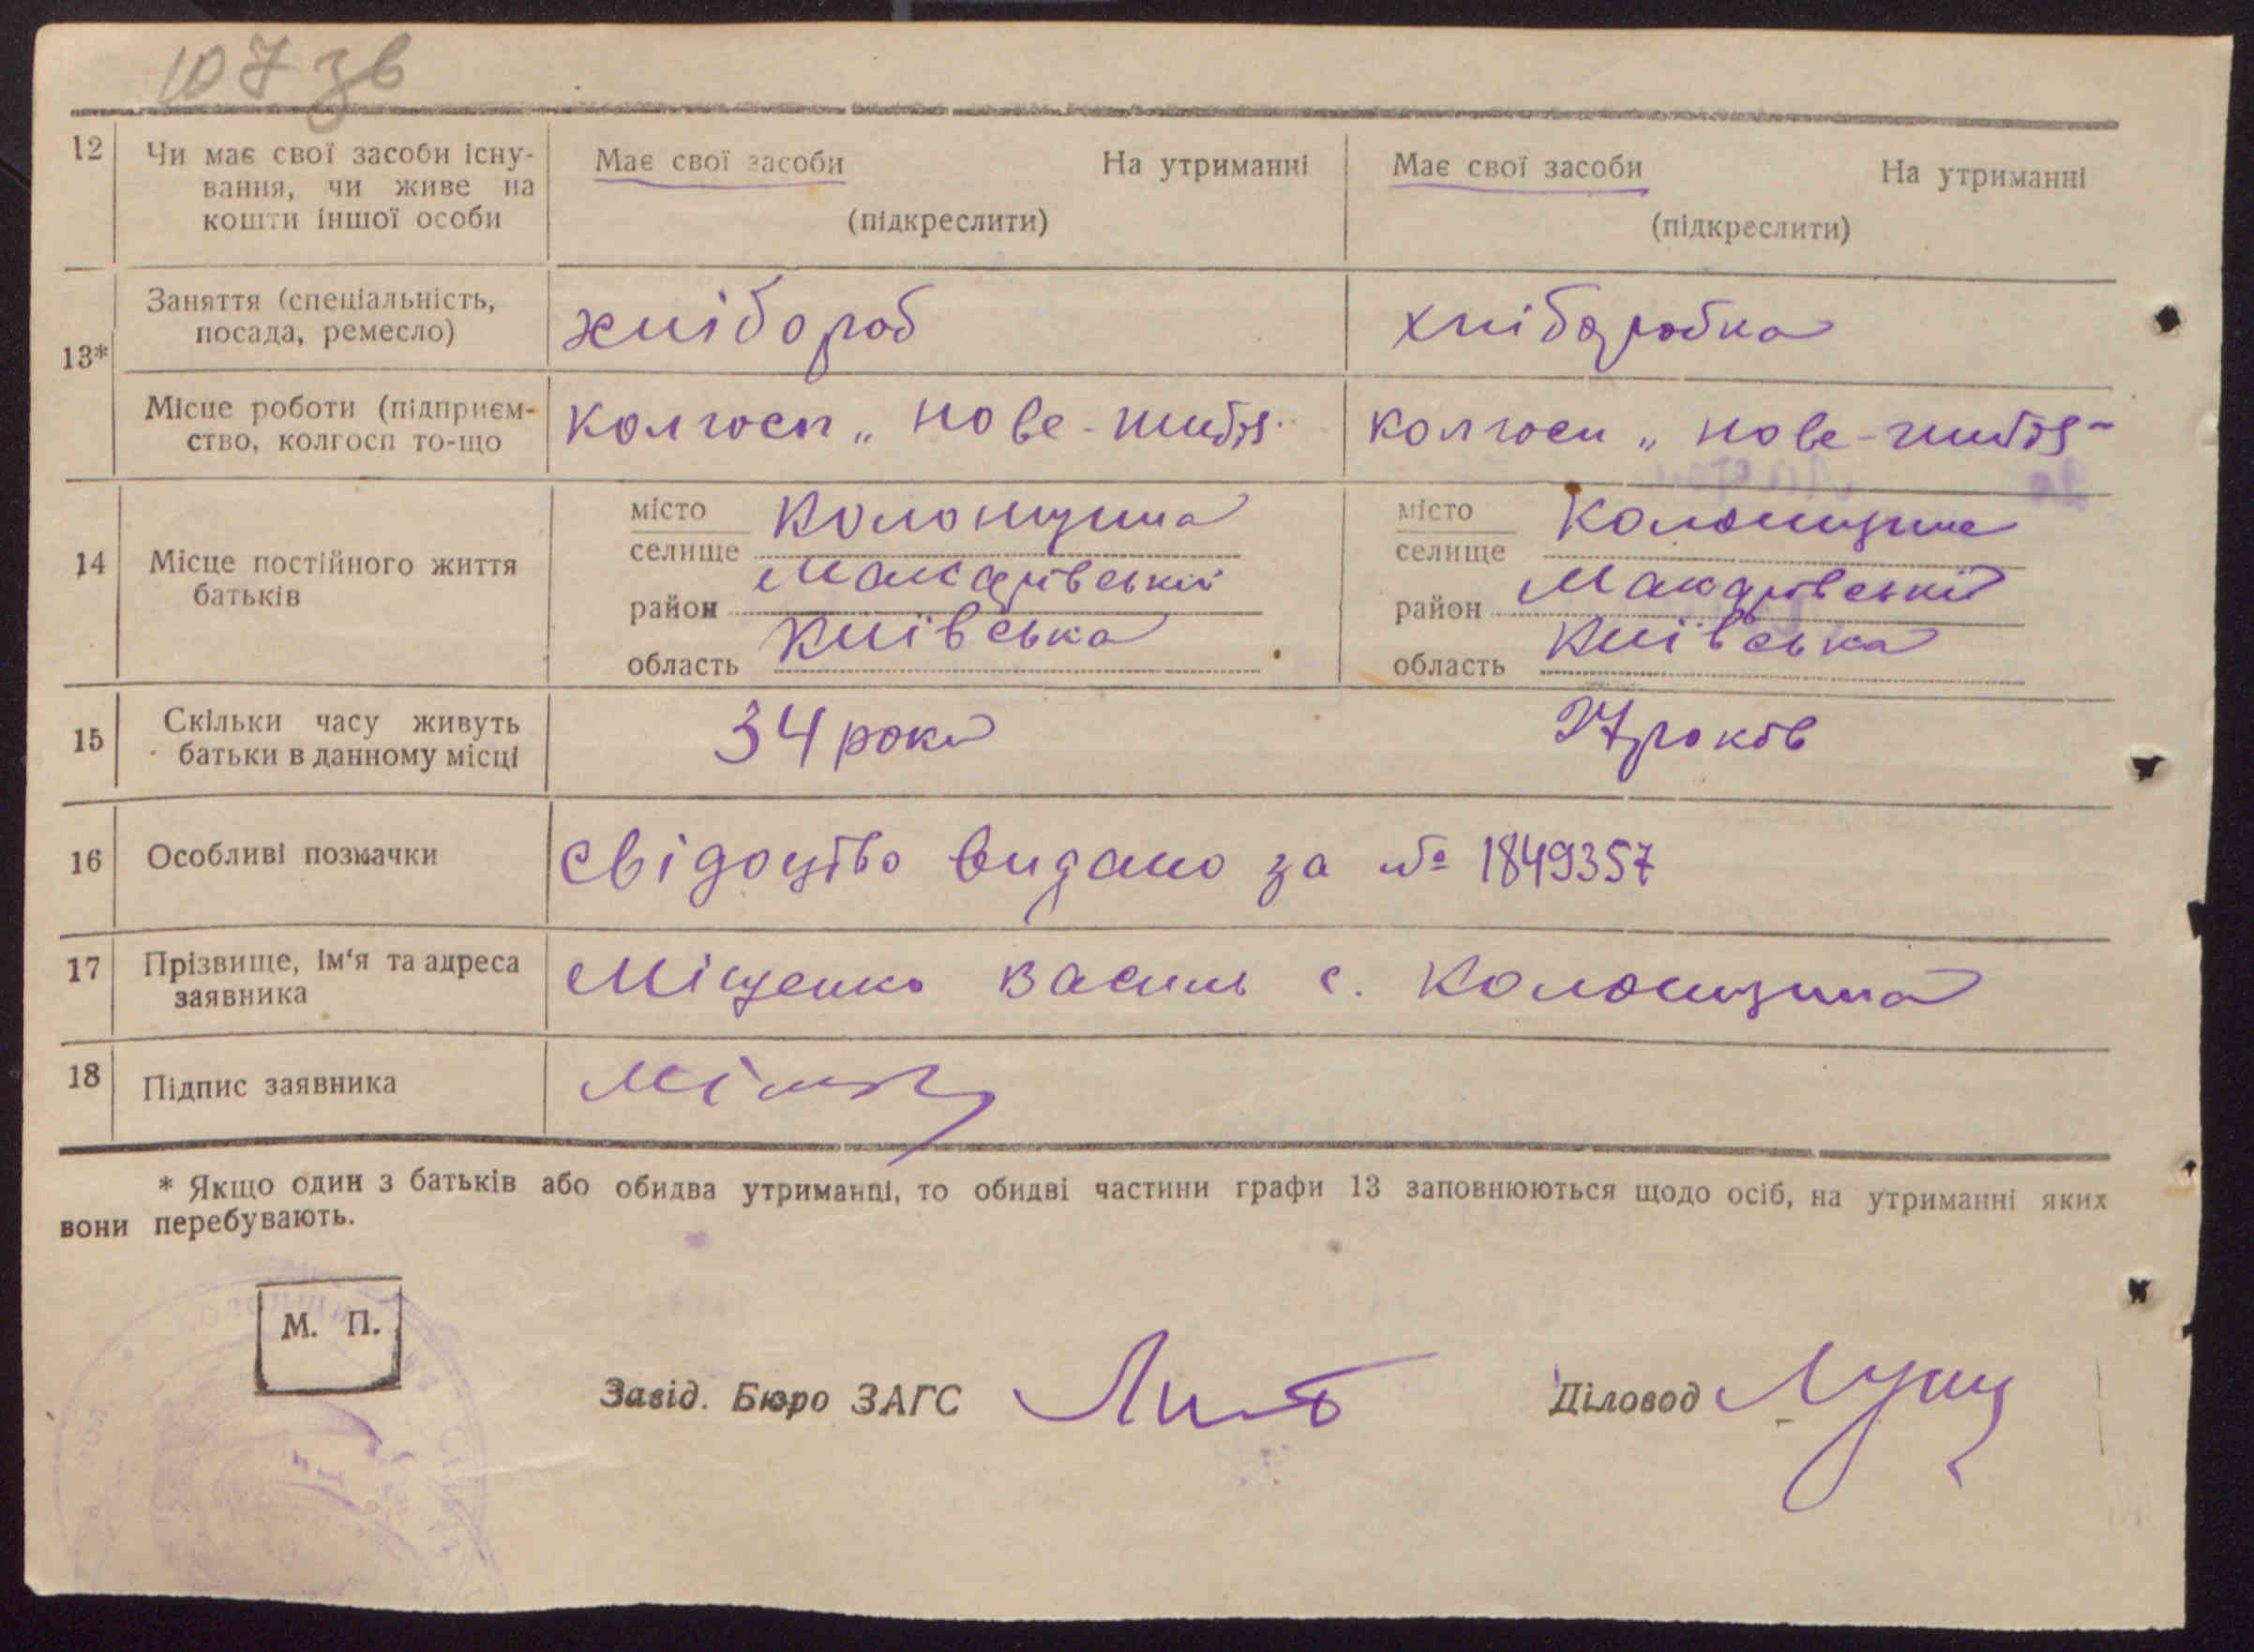 107 зв
12 Чи має свої засоби існу- Має свої засоби На утриманні Має свої засоби На утриманні
вання, чи живе на
кошти іншої особи (підкреслити) (підкреслити)
Заняття (спеціальність, хлібороб хліборобка
посада, ремесло)
13*
Місце роботи (підприєм- колгосп „ нове-життя колгосп „ нове-життя
ство, колгосп то-що
місто Колонщина місто Колонщина
селище селище
14 Місце постійного життя
батьків
район Макарівський район Макарівській
область Київська область Київська
15 Скільки часу живуть 34 роки 27 років
батьки в данному місці
16 Особливі позначки свідоцтво видано за № 1849357
17 Прізвище, ім'я та адреса Міщенко Василь с. Колонщина
заявника
18 Підпис заявника
* Якщо один з батьків або обидва утриманці, то обидві частини графи 13 заповнюються щодо осіб, на утриманні яких
вони перебувають.
М. П.
Завід. Бюро ЗАГС Діловод